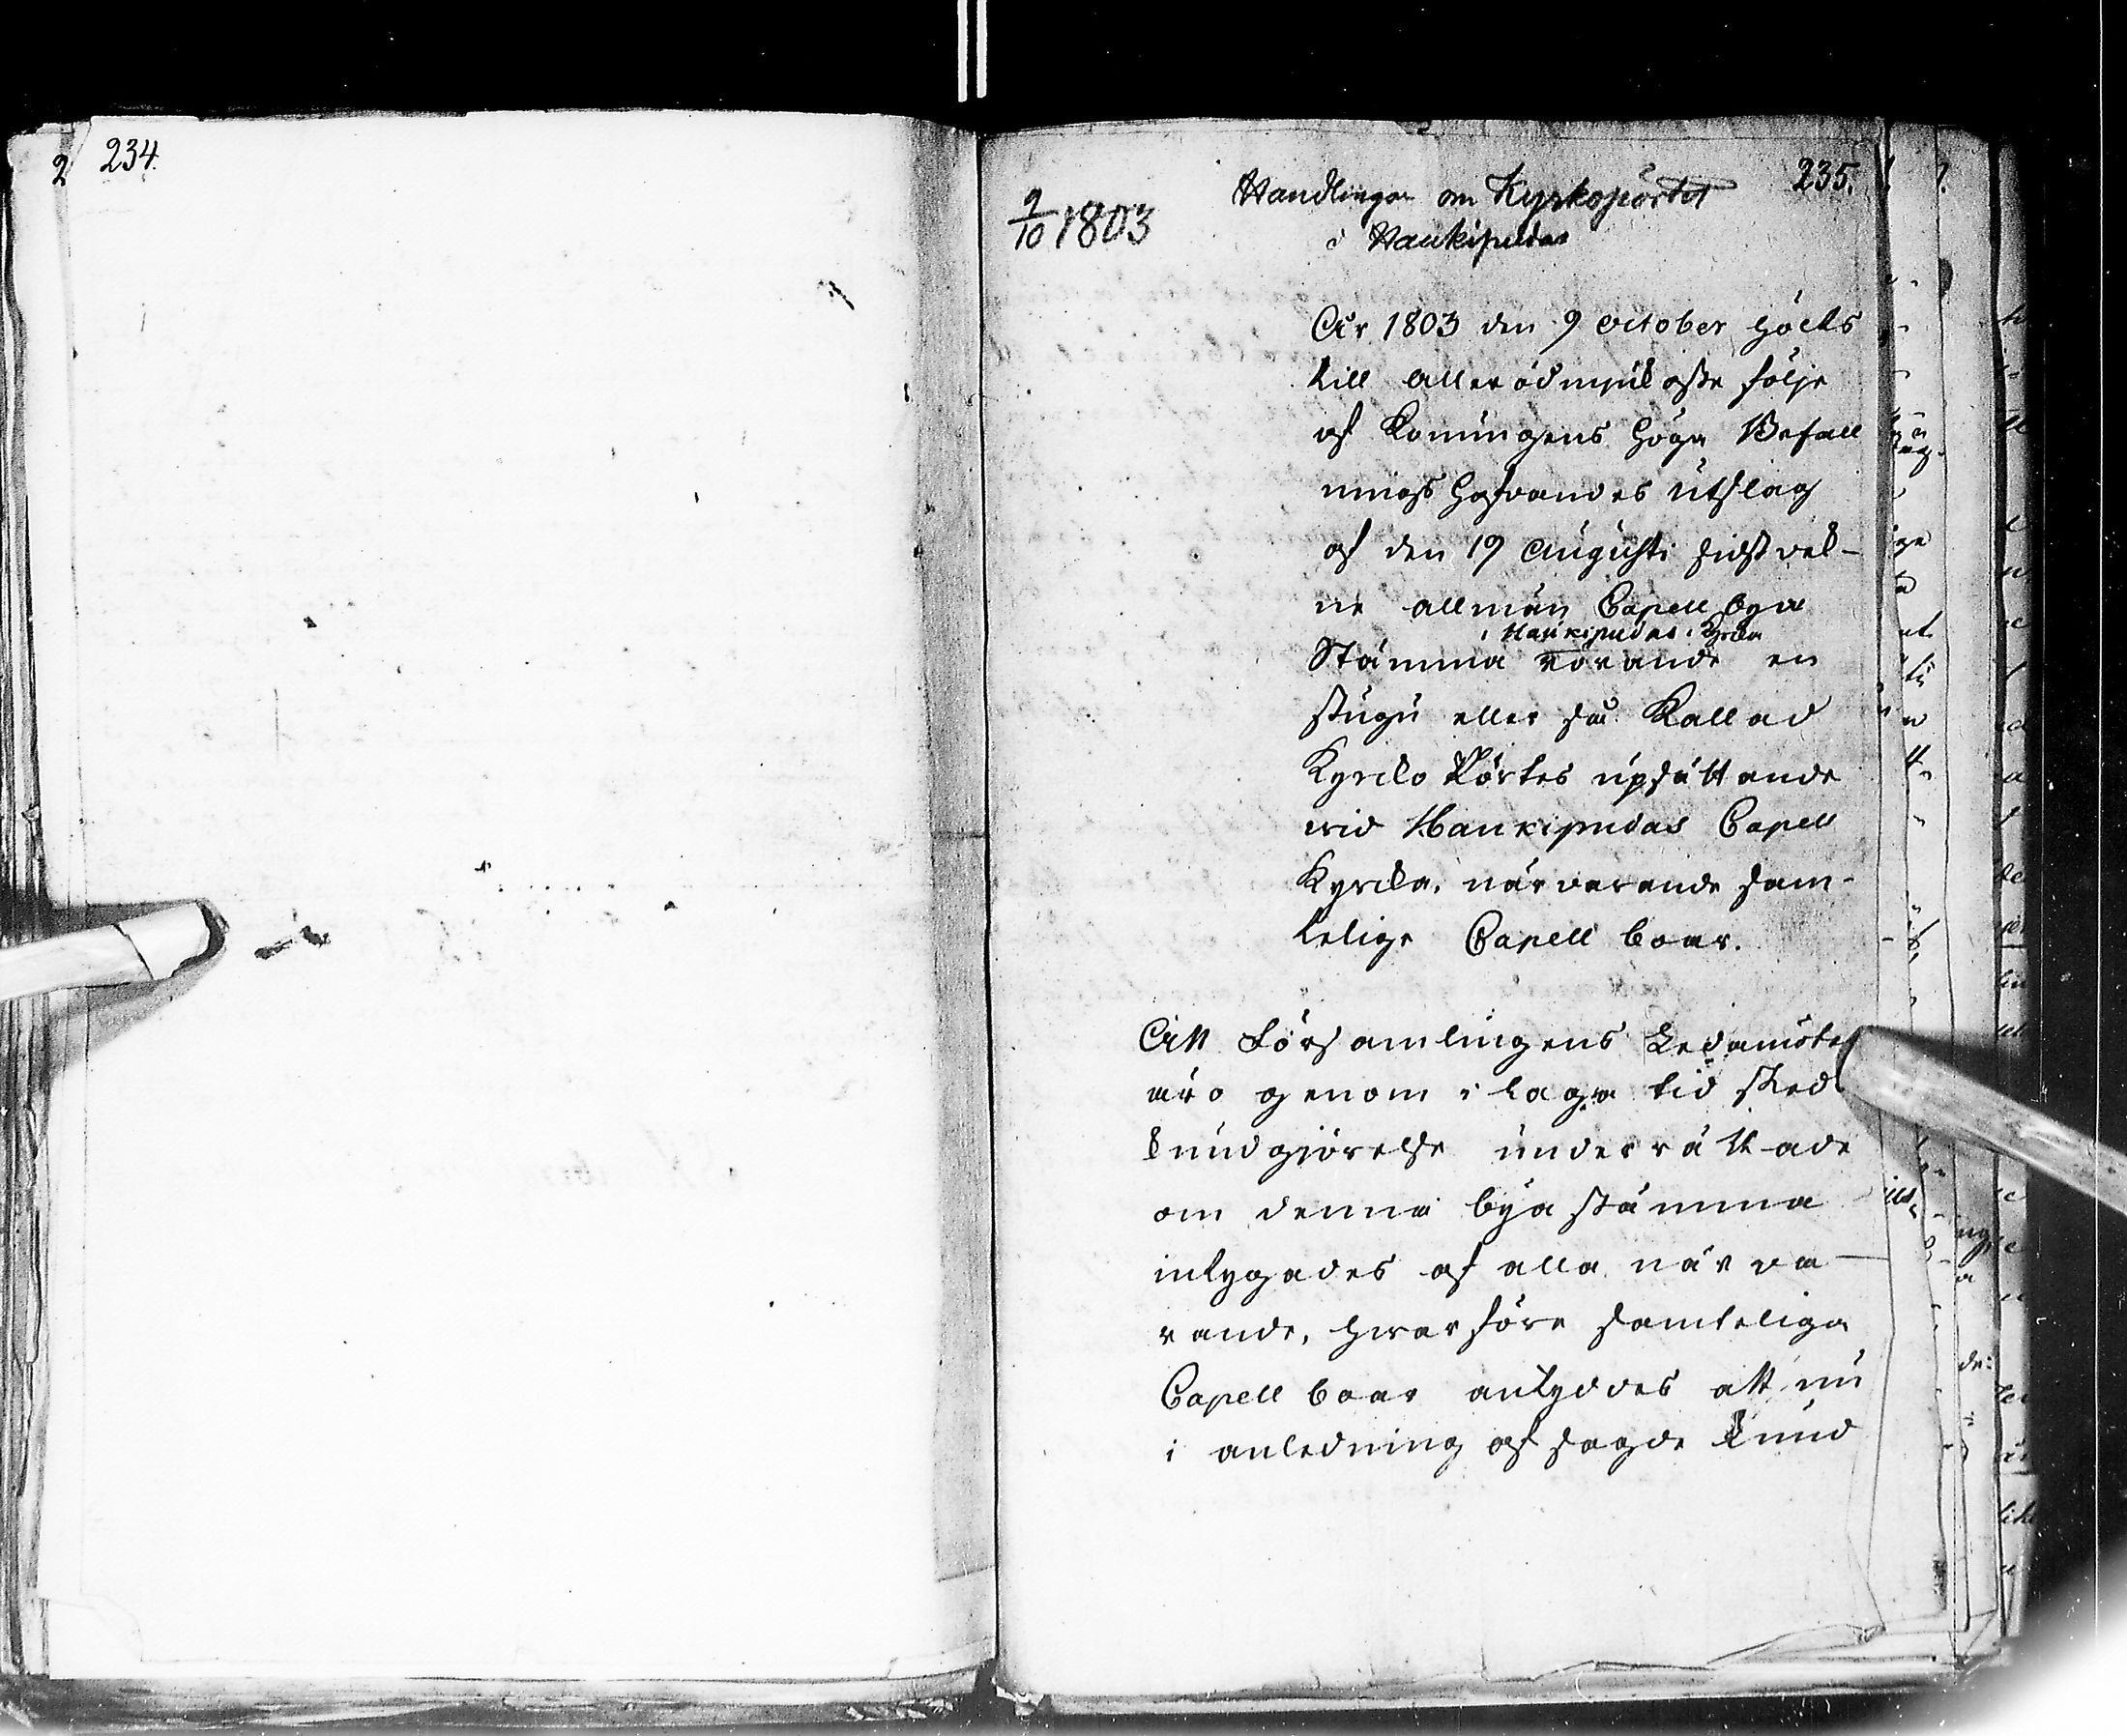 234.
2
235.
9/10 1803
Handlingar om Kyrkopörtet
i Haukipudas
År 1803 den 9 October hölts
till allerödmjukaste följe
af Konungens höga Befall
nings hafvandes utslag
af den 19 Augusti sidstvek-
ne allmän Capell bya
i Haukipudas Kyrka
Stämma rörande en
stugu eller så kallad
Kyrcko Pörtes upsättande
wid Haukipudas Capell
Kyrcka, närvarande sam-
telige Capell boar.
Att Församlingens Ledamöter
äro genom i laga tid sked
kundgiörelse underrättade
om denna bya stämma
intygades af alla närva-
rande, hwarföre samteliga
Capell boar antyddes att nu
i anledning af sagde kund